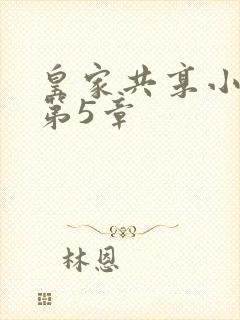 皇家共享小
第5章
林恩